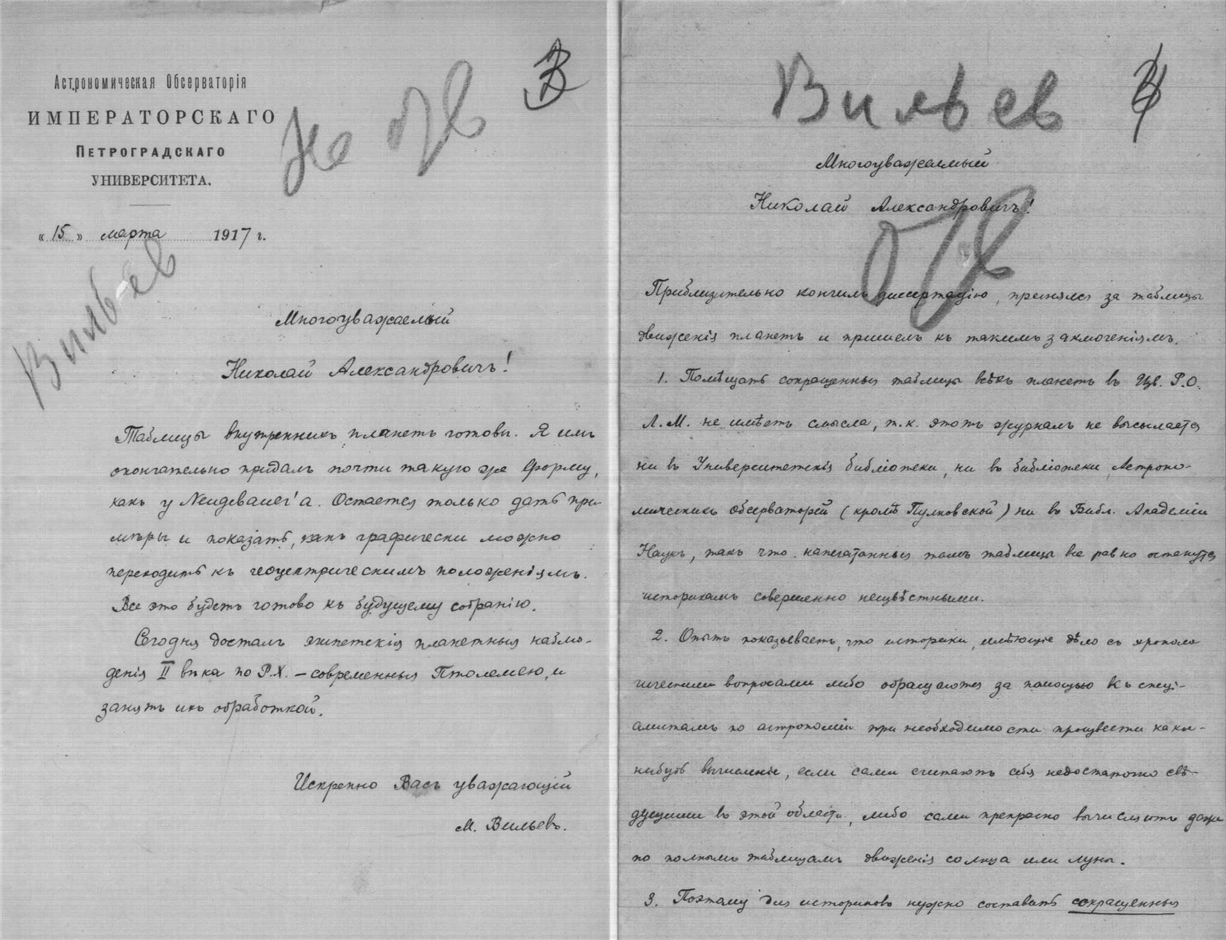 Астрономическая Обсерваторія
ИМПЕРАТОРСКАГО
ПЕТРОГРАДСКАГО
УНИВЕРСИТЕТА.
« 15 » марта 1917 г.
Вильев
Многоуважаемый
Николай Александровичъ!
Таблицы внутреннихъ планетъ готовы. Я имъ
окончательно придалъ почти такую же форму,
какъ у Neugebauer'а. Остается только дать при-
мѣры и показать, какъ графически можно
переходить къ геоцентрическимъ положеніямъ.
Все это будетъ готово къ будущему собранію.
Сегодня досталъ египетскія планетныя наблю-
денія II вѣка по Р.Х. – современныя Птолемею, и
занятъ ихъ обработкой.
Искренно Васъ уважающій
М. Вильевъ.
Вильев
4
Многоуважаемый
Николай Александровичъ!
Приблизительно кончилъ диссертацію, принялся за таблицы
движенія планетъ и пришелъ къ такимъ заключеніямъ.
1. Помѣщать сокращенныя таблицы всѣхъ планетъ въ Изв. Р.О.
Л.М. не имѣетъ смысла, т.к. этотъ журналъ не высылается
ни въ Университетскія библіотеки, ни въ библіотеки Астроно-
мическихъ Обсерваторій (кромѣ Пулковской) ни въ Библ. Академіи
Наукъ, такъ что напечатанныя тамъ таблицы все равно останутся
историкамъ совершенно неизвѣстными.
2. Опытъ показываетъ, что историки, имѣющіе дѣло съ хроноло
гическими вопросами либо обращаются за помощью къ спеці-
алистамъ по астрономіи при необходимости произвести какое-
нибудь вычисленіе, если сами считаютъ себя недостаточно свѣ-
дущими въ этой области, либо сами прекрасно вычислятъ даже
по полнымъ таблицамъ движенія солнца или луны.
3. Поэтому для историковъ нужно составить сокращенныя